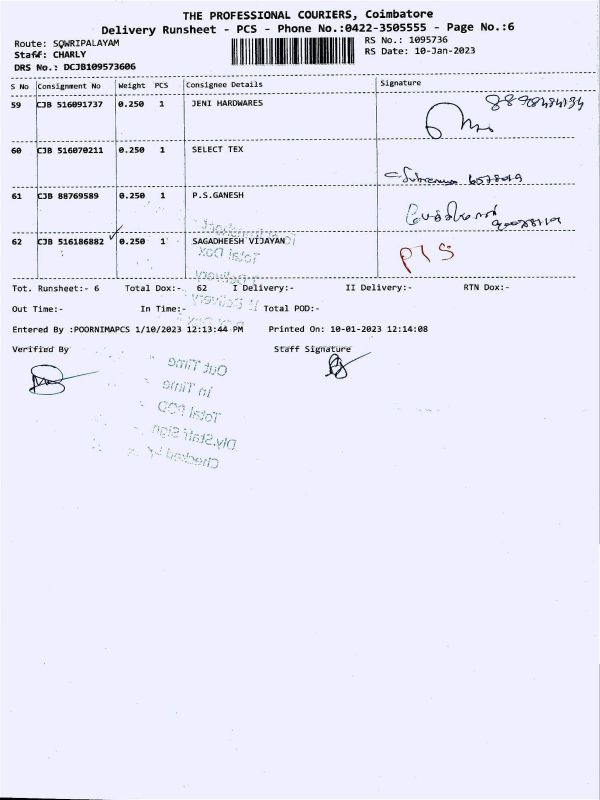 THE PROFESSIONAL COURIERS, Coimbatore
Delivery Runsheet - PCS - Phone No.:0422-3505555 - Page No.:6
Route: SOWRIPALAYAM RS No.: 1095736
Staff: CHARLY RS Date: 10-Jan-2023
DRS No.: DCJB109573606
S No Consignment No Weight PCS Consignee Details Signature
59 CJB 516091737 0.250 1 JENI HARDWARES
60 CJB 516070211 0.250 1 SELECT TEX
61 CJB 88769589 0.250 1 P.S.GANESH
62 CJB 516186882 0.250 1 SAGADHEESH VIJAYAN
Tot. Runsheet:- 6 Total Dox:- 62 I Delivery:- II Delivery:- RTN Dox:-
Out Time:- In Time:- Total POD:-
Entered By :POORNIMAPCS 1/10/2023 12:13:44 PM Printed On: 10-01-2023 12:14:08
Verified By Staff Signature
Out Time
In Time
Total POD
Dly.Staff Sign
Checked By